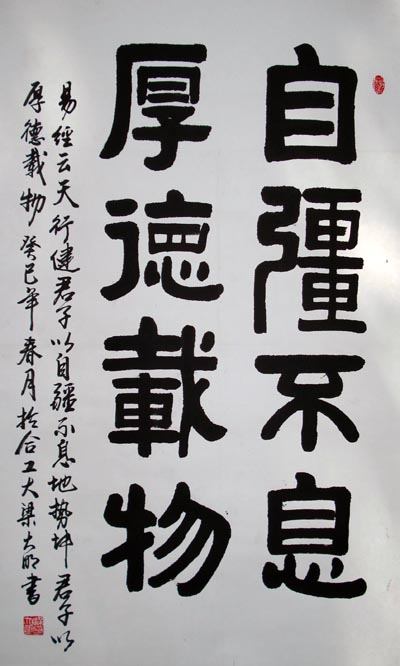 自彊不息
厚德載物
易經云天行健君子以自疆不息地勢坤君子以
厚德載物 癸巳年春月於合工大梁大明書